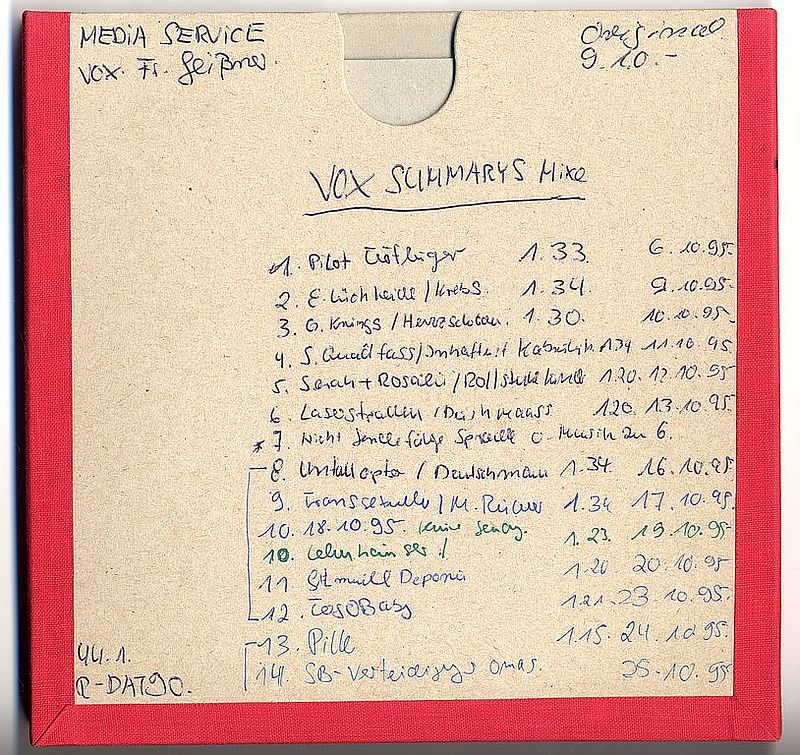 MEDIA SERVICE
VOX. Fr. Geißner.
Original
9.10.-
VOX SUMMARYS Mixe
1. Pilot 1.33. 6.10.95.
2. E. Lückheide / Krebs. 1.34. 9.10.95.
3. G. Knings / 1.30. 10.10.95.
4. S. Quallfass / 1.34 11.10.95.
5. Sarah + Rosalie / 1.20. 12.10.95
6. Laserstrahlen / 1.20. 13.10.95.
* 7. nicht Sprache o. Musik zu 6.
8. / Deutschmann 1.34. 16.10.95
9. Transsexuelle / M. 1.34 17.10.95.
10. 18.10.95. keine Sendg.
10. / 1.23. 19.10.95
11. Deponie 1.20. 20.10.95
12. Baby 1.21. 23.10.95.
13. Pille 1.15. 24.10.95.
14. SB-Verteidiger Omas. 25.10.95
44.1.
R-DAT90.